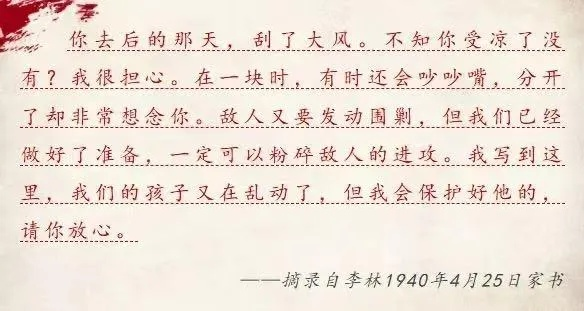 你去后的那天，刮了大风。不知你受凉了没
有？我很担心。在一块时，有时还会吵吵嘴，分开
了却非常想念你。敌人又要发动围剿，但我们已经
做好了准备，一定可以粉碎敌人的进攻。我写到这
里，我们的孩子又在乱动了，但我会保护好他的，
请你放心。
——摘录自李林1940年4月25日家书